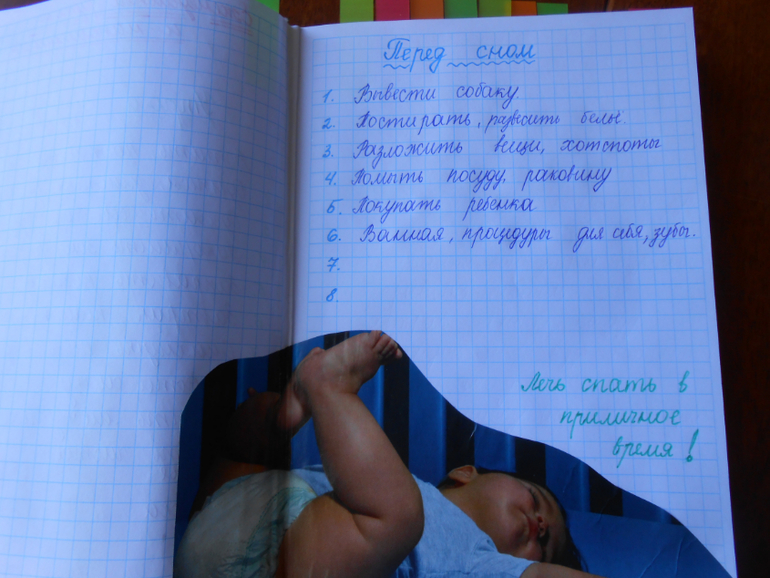 Перед сном
1. Вывести собаку
2. Постирать, развесить бельё.
3. Разложить вещи, хотспоты
4. Помыть посуду, раковину
5. Покупать ребенка
6. Ванная, процедуры для себя, зубы.
7.
8.
Лечь спать в
приличное
время!